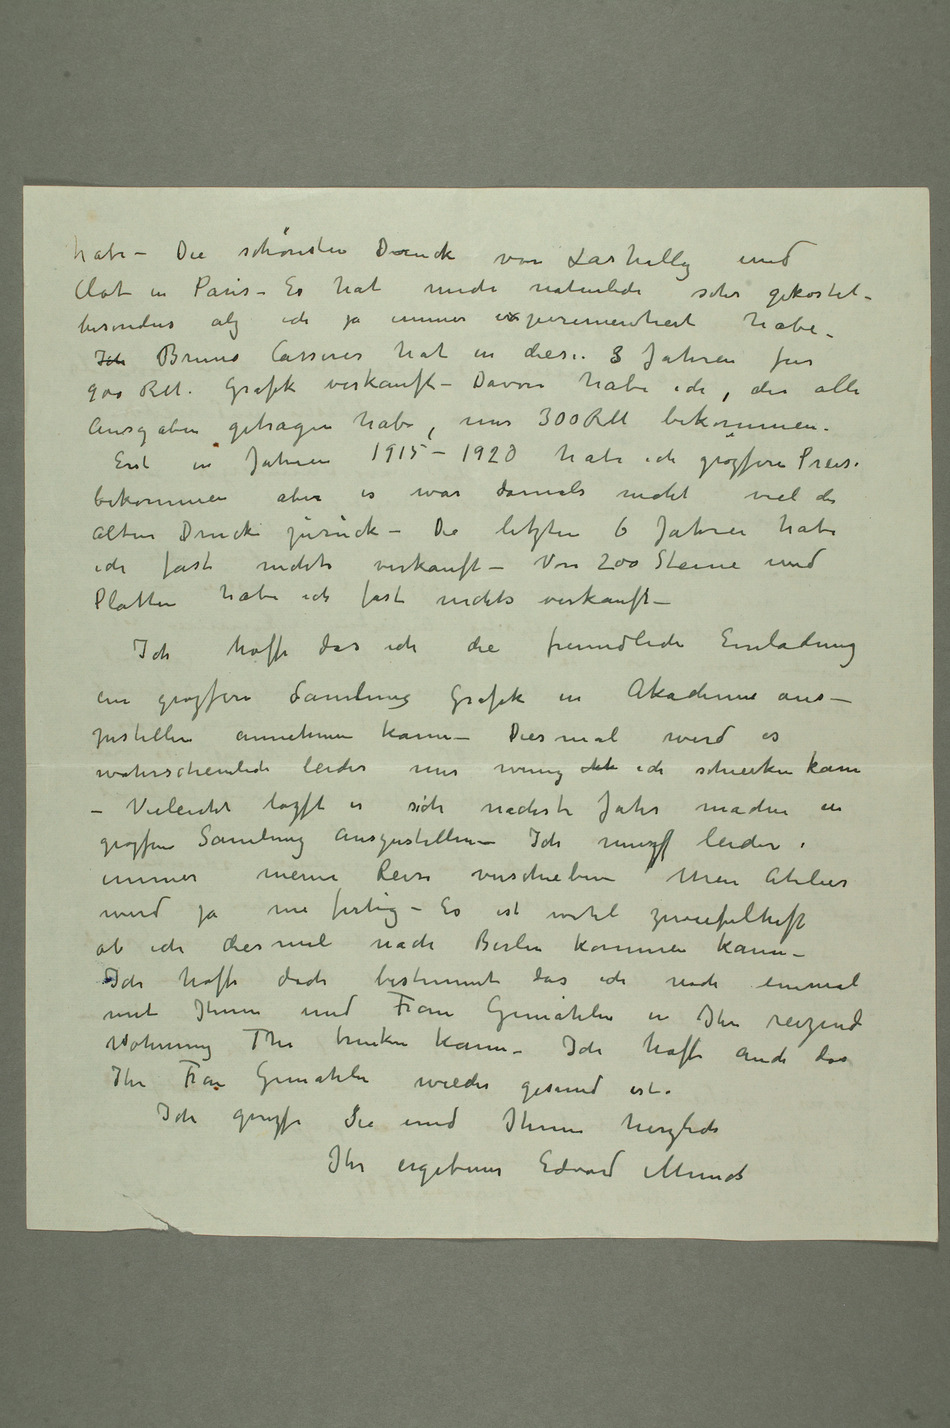 habe – Die schönsten Druck von Lashally und
Clot in Paris – Es hat mich naturlich sehr gekostet –
besonders alz ich ja immer experimentiert habe –
Ich Bruno Cassirer hat in diese 8 Jahren fur
900 RM. Grafik verkauft – Davon habe ich, der alle
Ausgaben getragen habe, nur 300 RM bekommen.
Erst in Jahren 1915 – 1920 habe ich grozfere Preise
bekommen aber es war damals nicht viel der
alten Drucke zurück – Die letzten 6 Jahren habe
ich fast nichts verkauft – Von 200 Steine und
Platten habe ich fast nichts verkauft –
Ich hoffe das ich die freundliche Einladung
eine grozfere Samlung Grafik in Akademie aus–
zustellen annehmen kann – Diesmal wird es
wahrscheinlich leider nur wenig ich schicken kann
– Vieleicht lazft es sich nächste Jahr machen eine
grozfere Samlung auszustellen – Ich muzf leider
immer meine Reise verschieben Mein Atelier
wird ja nie fertig – Es ist wohl zweifelhaft
ob ich diesmal nach Berlin kommen kann –
Ich hoffe doch bestimmt das ich noch einmal
mit Ihnen und Frau Gemahlin in Ihre reizende
Wohnung The trinken kann – Ich hoffe auch das
Ihr Frau Gemahlin wieder gesund ist.
Ich gruzfe Sie und Ihnen herzlich
Ihr ergebener Edvard Munch